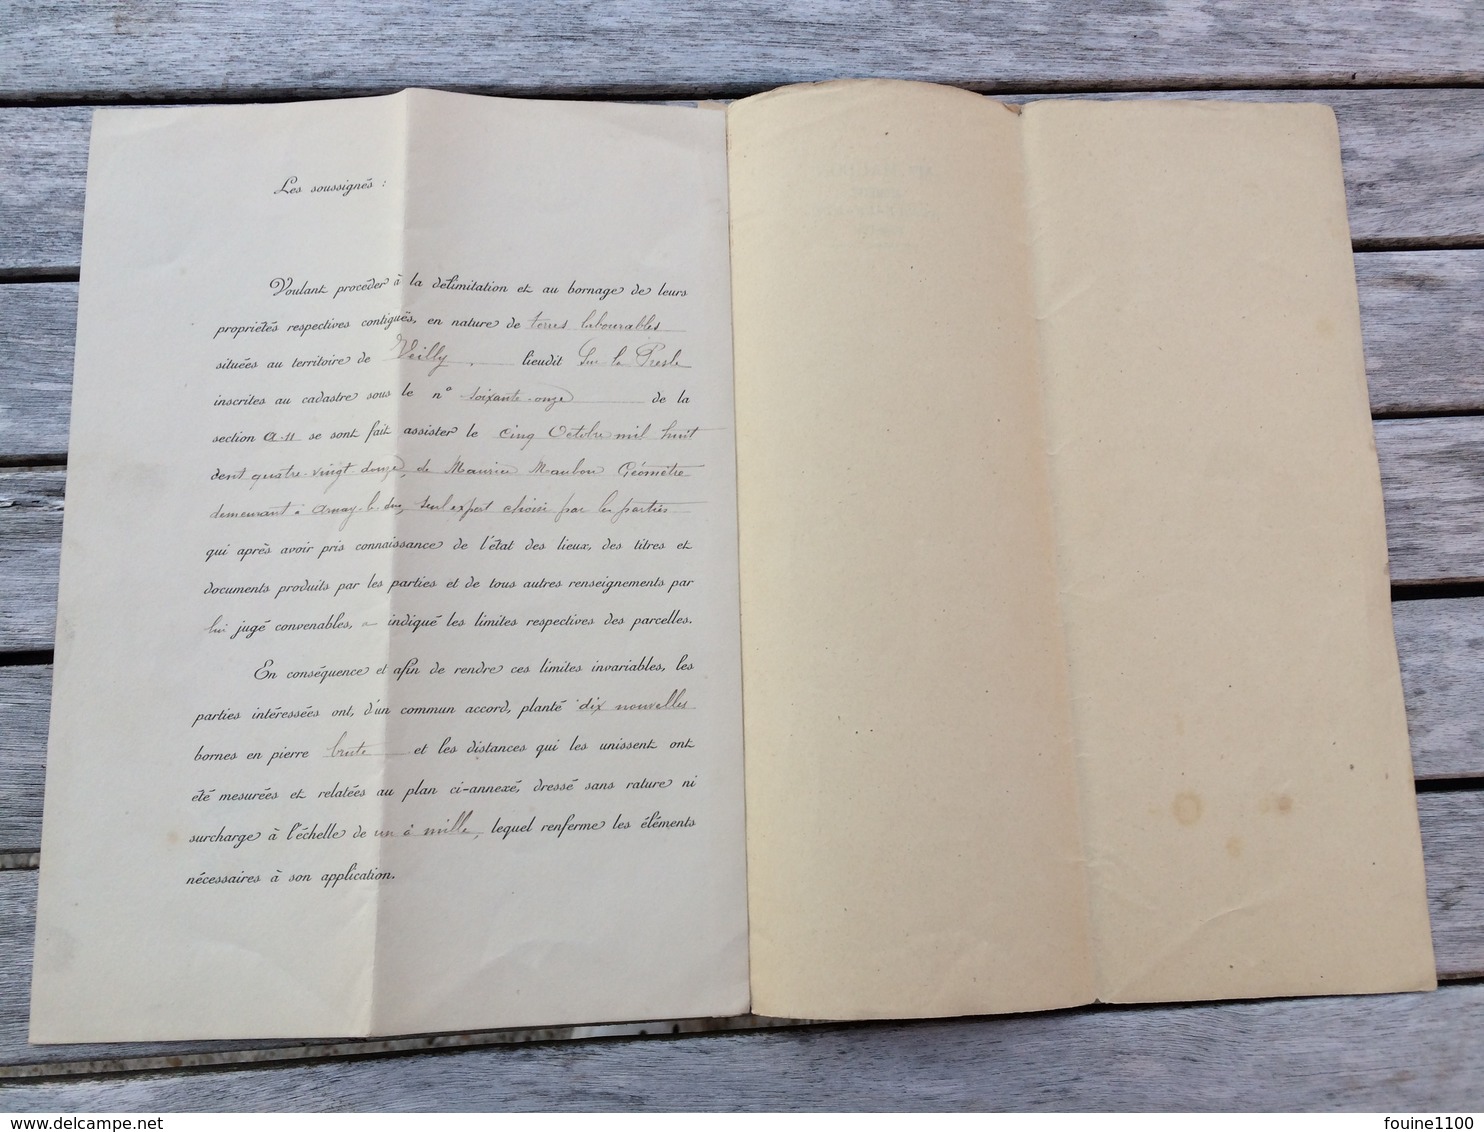 Les soussignés :
Voulant procéder à la délimitation et au bornage de leurs
propriétés respectives contiguës, en nature de terres labourables
situées au territoire de Veilly lieudit Sur la Presle
inscrites au cadastre sous le nº soixante-onze de la
section A.11 se sont fait assister le cinq Octobre mil huit
cent quatre-vingt douze, de Maurice Maubon Géomètre
demeurant à Arnay-le-duc, seul expert choisi par les parties
qui après avoir pris connaissance de l'état des lieux, des titres et
documents produits par les parties et de tous autres renseignements par
lui jugé convenables, a indiqué les limites respectives des parcelles.
En conséquence et afin de rendre ces limites invariables, les
parties intéressées ont, d'un commun accord, planté dix nouvelles
bornes en pierre brute et les distances qui les unissent ont
été mesurées et relatées au plan ci-annexé, dressé sans rature ni
surcharge à l'échelle de un à mille, lequel renferme les éléments
nécessaires à son application.
www.delcampe.net
fouine1100